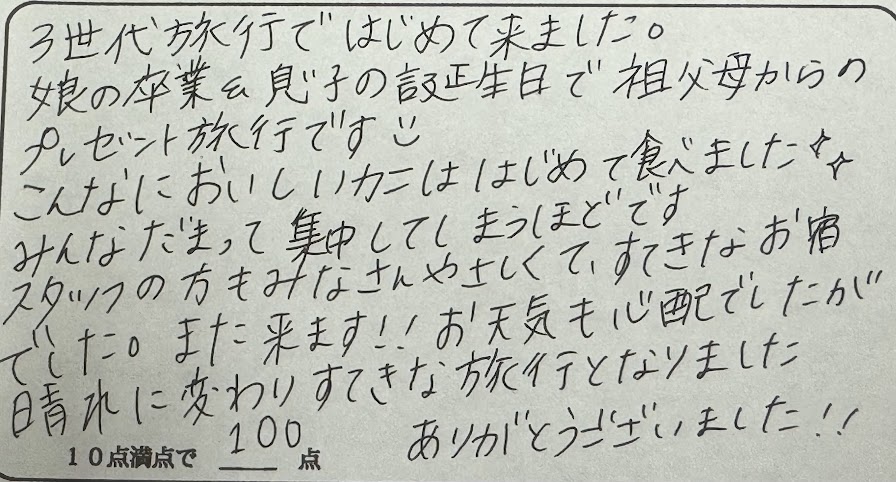 3世代旅行ではじめて来ました。
娘の卒業&息子の誕生日で祖父母からの
プレゼント旅行です
こんなにおいしいカニははじめて食べました
みんなだまって集中してしまうほどです
スタッフの方もみなさんやさしくて、すてきなお宿
でした。また来ます!!お天気も心配でしたが
晴れに変わりすてきな旅行となりました
ありがとうございました!!
10点満点で 100 点